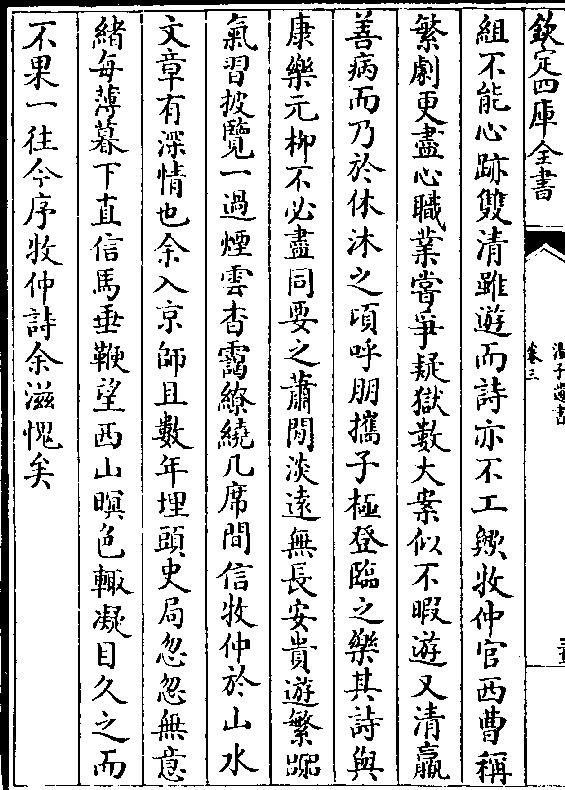 欽定四庫全書
湯子遺書
卷三
組不能心跡雙清雖遊而詩亦不工歟牧仲官西曹稱
繁劇更盡心職業嘗爭疑獄數大案似不暇遊又清羸
善病而乃於休沐之頃呼朋攜子極登臨之樂其詩與
康樂元柳不必盡同要之蕭閒淡遠無長安貴遊繁
氣習披覽一過煙雲杳靄繚繞几席間信牧仲於山水
文章有深情也余入京師且數年埋頭史局忽忽無意
緒每薄暮下直信馬垂鞭望西山暝色輙凝目久之而
不果一往今序牧仲詩余滋愧矣